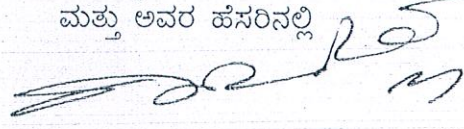 ಮತ್ತು ಅವರ ಹೆಸರಿನಲ್ಲಿ